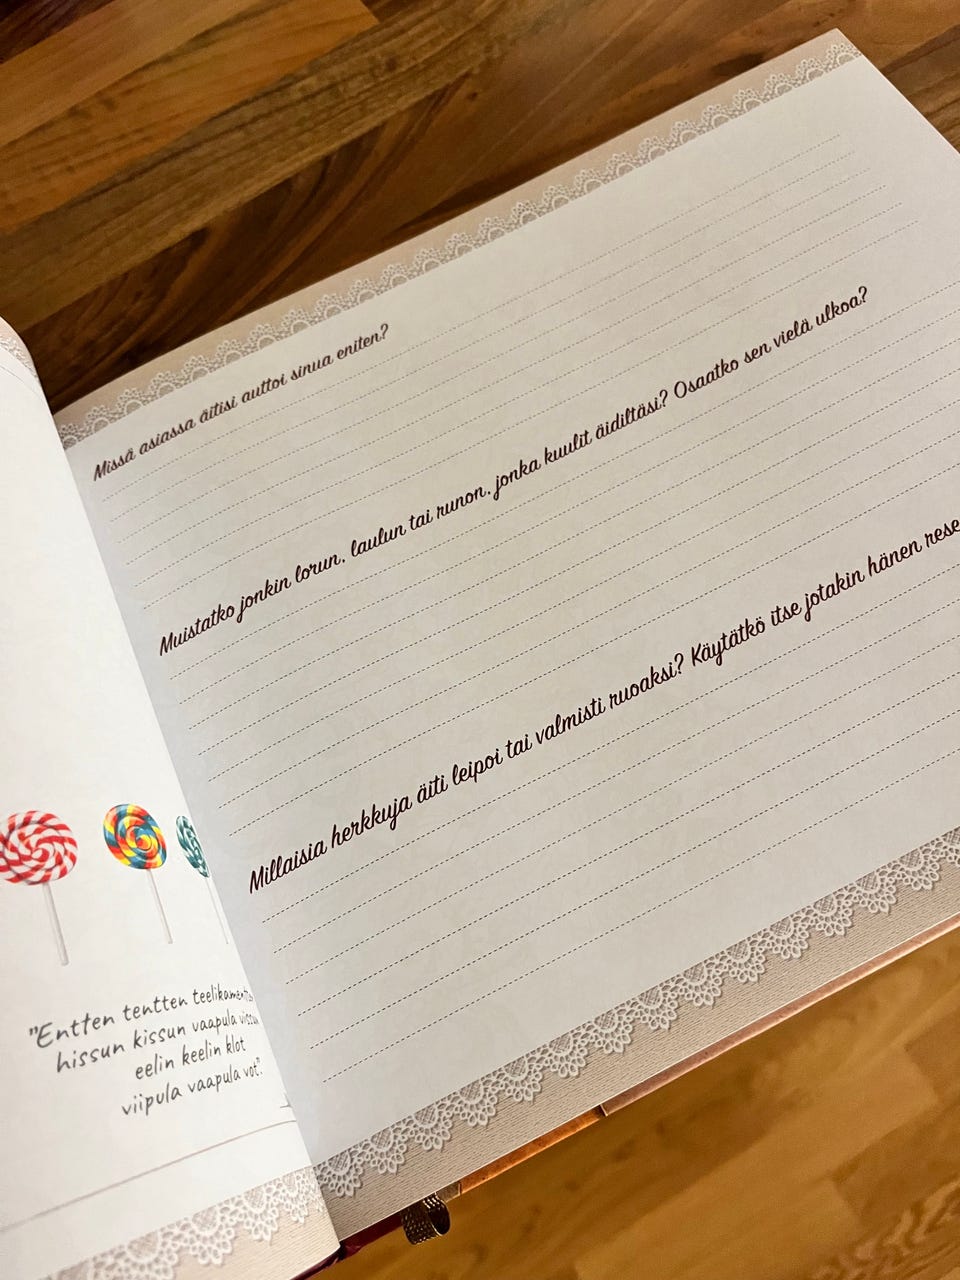 "Entten tentten
hissun kissun vaapula
eelin keelin klot
viipula vaapula vot".
Missä asiassa äitisi auttoi sinua eniten?
Muistatko jonkin lorun, laulun tai runon, jonka kuulit äidiltäsi? Osaatko sen vielä ulkoa?
Millaisia herkkuja äiti leipoi tai valmisti ruoaksi? Käytätkö itse jotakin hänen